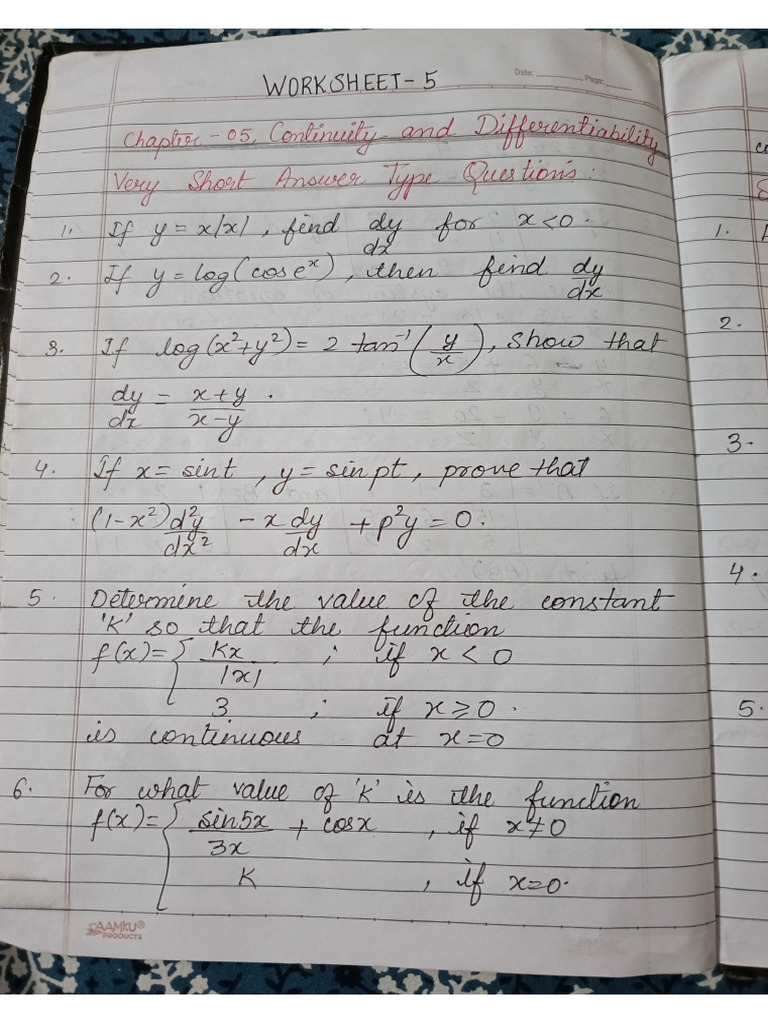 WORKSHEET-5
Date: ________ Page: ______
Chapter-05, Continuity and Differentiability
Very Short Answer Type Questions:
1. If y = x|x|, find dy/dx for x<0.
2. If y = log(cose^x), then find dy/dx
3. If log(x²+y²) = 2 tan⁻¹(y/x), show that
dy/dx = x+y/x-y.
4. If x = sint, y = sinpt, prove that
(1-x²)d²y/dx² - x dy/dx + p²y = 0.
5. Determine the value of the constant
'K' so that the function
f(x)={ Kx/|x| ; if x < 0
3 ; if x ≥ 0.
is continuous at x=0
6. For what value of 'K' is the function
f(x)={ sin5x/3x + cosx, if x≠0
K, if x=0.
AAMKU®
PRODUCTS
1.
2.
3.
4.
5.